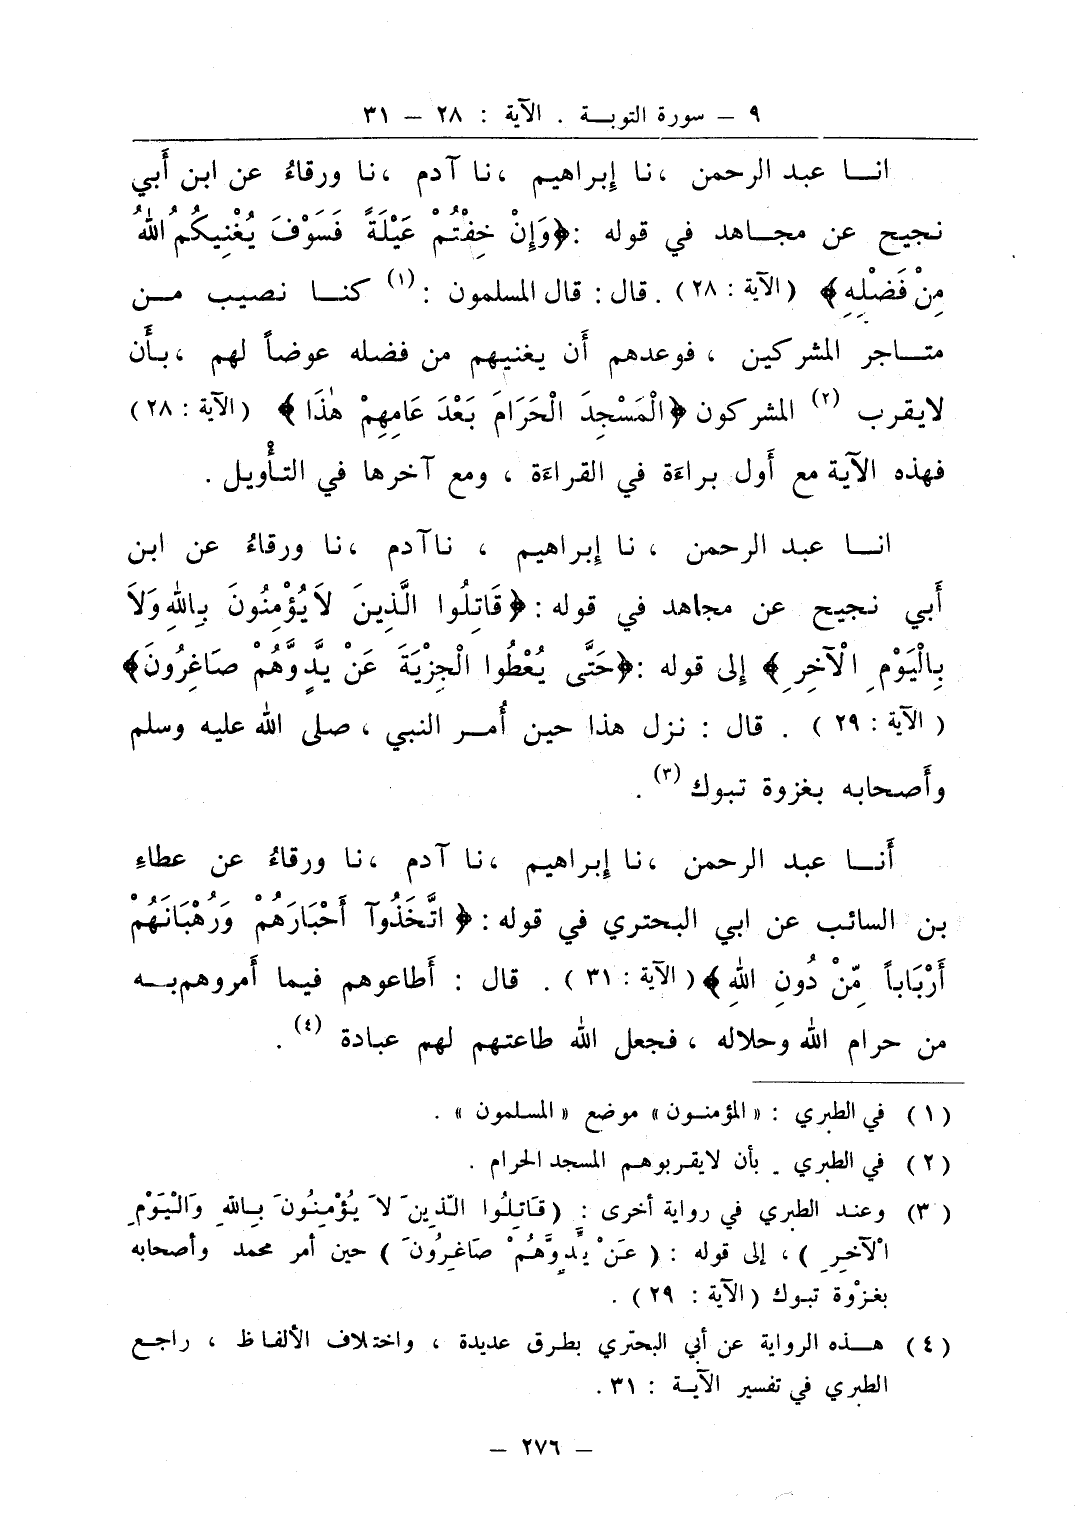 ٩ — سورة التوبة . الآية : ٢٨ — ٣١
انا عبد الرحمن ، نا إبراهيم ، نا آدم ، نا ورقاءُ عن ابن أبي
نجيح عن مجاهد في قوله : ﴿وَإِنْ خِفْتُمْ عَيْلَةً فَسَوْفَ يُغْنِيكُمُ اللهُ
مِنْ فَضْلِهِ﴾ (الآية : ٢٨) . قال : قال المسلمون :(١) كنا نصيب من
متاجر المشركين ، فوعدهم أن يغنيهم من فضله عوضاً لهم ، بأن
لايقرب (٢) المشركون ﴿الْمَسْجِدَ الْحَرَامَ بَعْدَ عَامِهِمْ هٰذَا﴾ (الآية : ٢٨)
فهذه الآية مع أول براءَة في القراءَة ، ومع آخرها في التأْويل .
انا عبد الرحمن ، نا إبراهيم ، نا آدم ، نا ورقاءُ عن ابن
أبي نجيح عن مجاهد في قوله : ﴿قَاتِلُوا الَّذِينَ لَا يُؤْمِنُونَ بِاللهِ وَلَا
بِالْيَوْمِ الْآخِرِ﴾ إلى قوله : ﴿حَتَّى يُعْطُوا الْجِزْيَةَ عَنْ يَّدٍ وَّهُمْ صَاغِرُونَ﴾
(الآية : ٢٩) . قال : نزل هذا حين أُمر النبي ، صلى الله عليه وسلم
وأَصحابه بغزوة تبوك (٣) .
أَنا عبد الرحمن ، نا إبراهيم ، نا آدم ، نا ورقاءُ عن عطاءِ
بن السائب عن ابي البحتري في قوله : ﴿اتَّخَذُوآ أَحْبَارَهُمْ وَرُهْبَانَهُمْ
أَرْبَاباً مِّنْ دُونِ اللهِ﴾ (الآية : ٣١) . قال : أَطاعوهم فيما أَمروهم به
من حرام الله وحلاله ، فجعل الله طاعتهم لهم عبادة (٤) .
(١) في الطبري : « المؤمنون » موضع « المسلمون » .
(٢) في الطبري . بأن لايقربوهم المسجد الحرام .
(٣) وعند الطبري في رواية أخرى : (قَاتِلُوا الَّذِينَ لَا يُؤْمِنُونَ بِاللهِ وَالْيَوْمِ
الْآخِرِ) ، إلى قوله : (عَنْ يَّدٍ وَّهُمْ صَاغِرُونَ) حين أمر محمد وأصحابه
بغزْوة تبوك (الآية : ٢٩) .
(٤) هذه الرواية عن أبي البحتري بطرق عديدة ، واختلاف الألفاظ ، راجع
الطبري في تفسير الآية : ٣١ .
— ٢٧٦ —